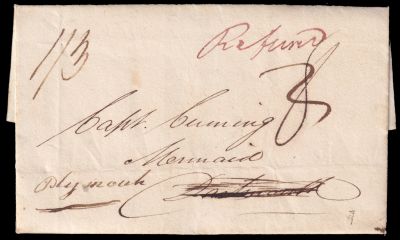 1/3
Refund
8
Capt. Cuming
Mermaid
Plymouth
Portsmouth